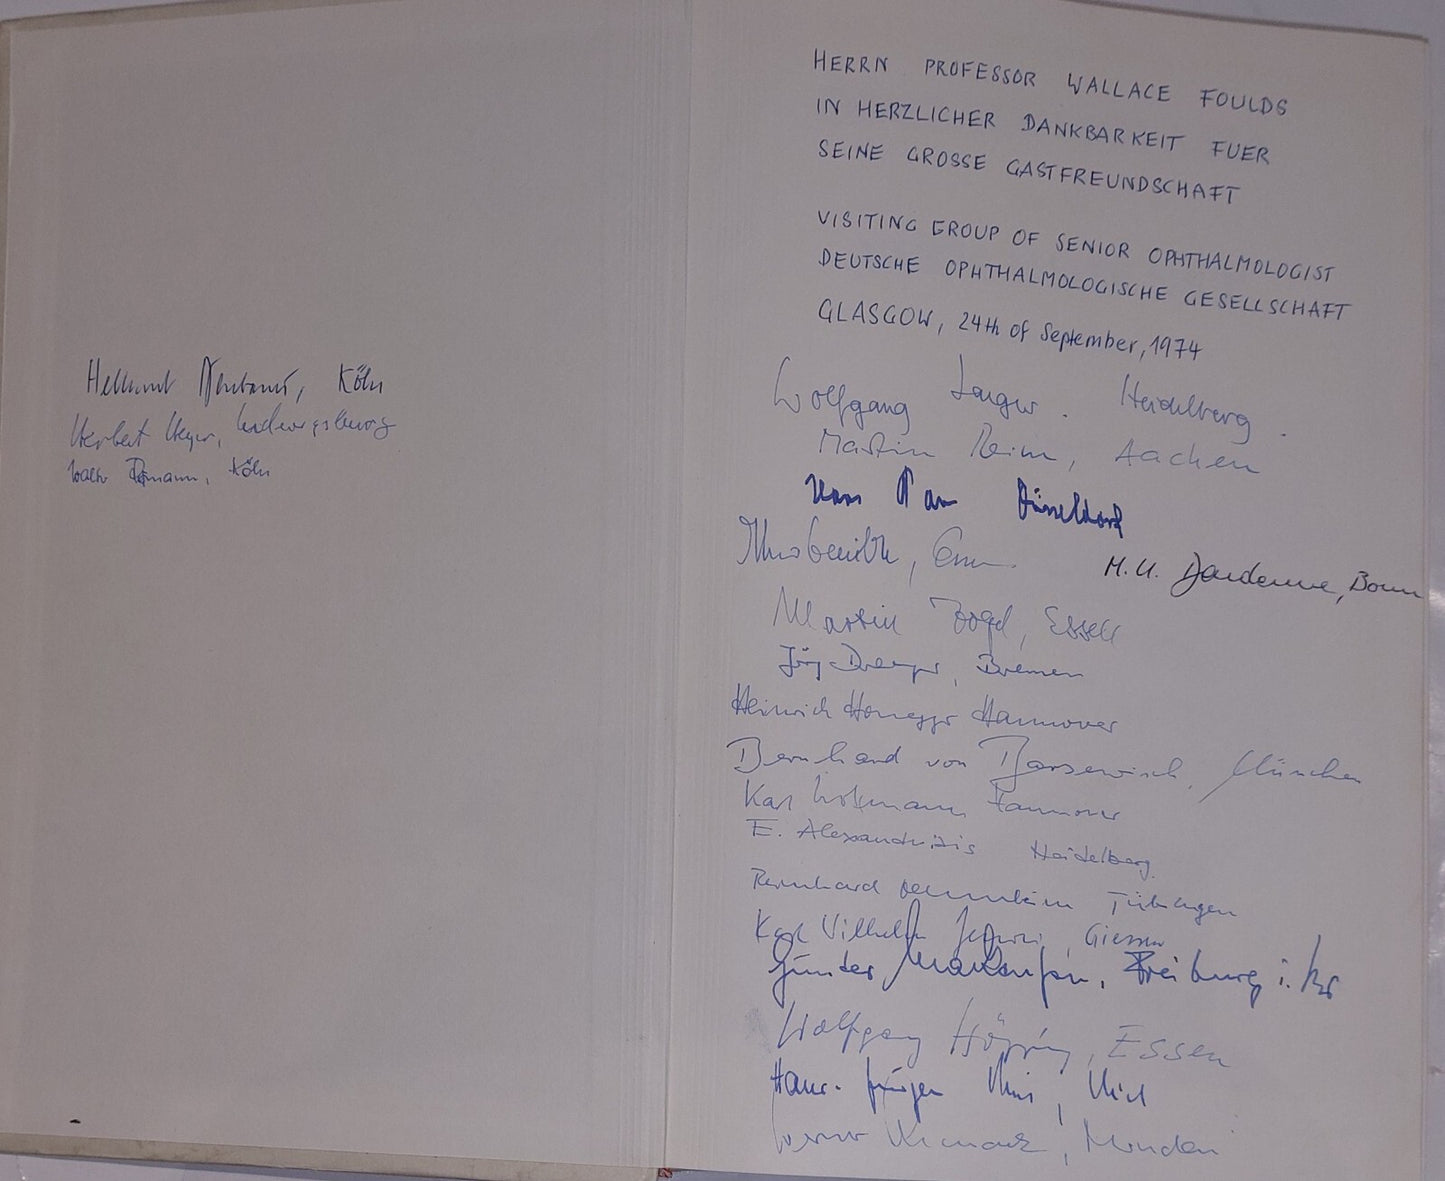 Hellmut Neubaur, Köln
Herbert Meyer, Ludwigsburg
Köln
HERRN PROFESSOR WALLACE FOULDS
IN HERZLICHER DANKBARKEIT FUER
SEINE GROSSE GASTFREUNDSCHAFT
VISITING GROUP OF SENIOR OPHTHALMOLOGIST
DEUTSCHE OPHTHALMOLOGISCHE GESELLSCHAFT
GLASGOW, 24th of September, 1974
Wolfgang Jaeger. Heidelberg.
Martin Reim, Aachen
Hans Pau Düsseldorf
M. U. Dardenne, Bonn
Martin Vogel, Essen
Jörg Draeger, Bremen
Heinrich Honegger Hannover
Bernhard von Barsewisch, München
Karl Hannover
E. Alexandridis Heidelberg.
Tübingen
Karl Wilhelm Jacobi, Giessen
Günter Mackensen, Freiburg i. Br
Wolfgang Höpping, Essen
Hans-Jürgen
Minden